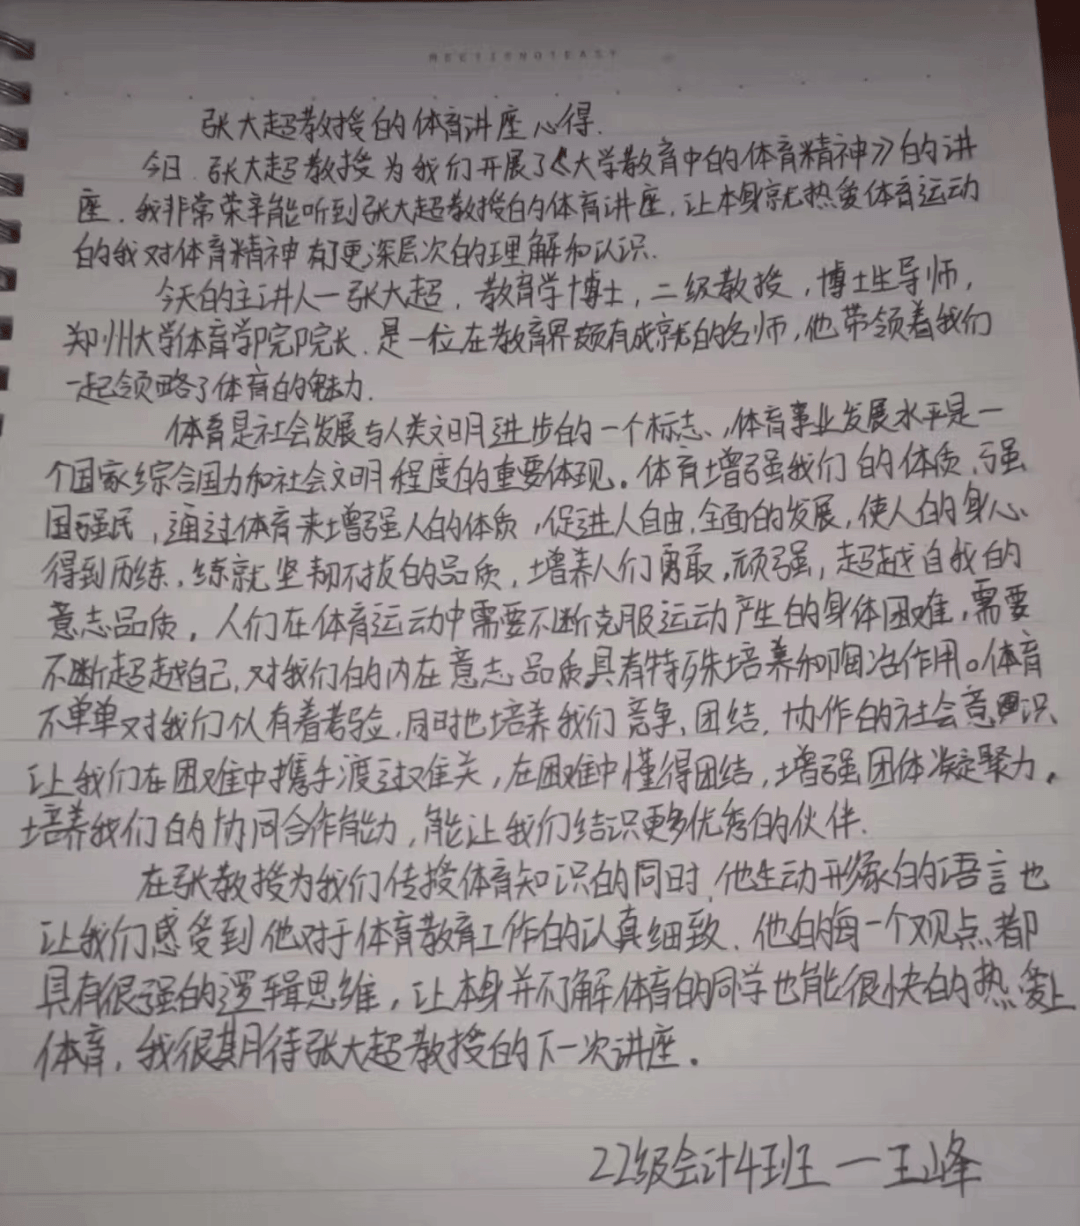 BETTERNOTEASY
张大超教授的体育讲座心得.
今日.张大超教授为我们开展了《大学教育中的体育精神》的讲
座.我非常荣幸能听到张大超教授的体育讲座,让本身就热爱体育运动
的我对体育精神有了更深层次的理解和认识.
今天的主讲人—张大超,教育学博士,二级教授,博士生导师,
郑州大学体育学院院长.是一位在教育界颇有成就的名师,他带领着我们
一起领略了体育的魅力.
体育是社会发展与人类文明进步的一个标志、,体育事业发展水平是一
个国家综合国力和社会文明程度的重要体现。体育增强我们的体质,强
国强民,通过体育来增强人的体质,促进人自由,全面的发展,使人的身心、
得到历练,练就坚韧不拔的品质,增养人们勇敢,顽强,超越自我的
意志品质,人们在体育运动中需要不断克服运动产生的身体困难,需要
不断超越自己,对我们的内在意志品质具有特殊培养和陶冶作用。体育
不单单对我们仅有着考验,同时也培养我们竞争、团结,协作的社会意识
让我们在困难中携手渡过难关,在困难中懂得团结,增强团体凝聚力,
培养我们的协同合作能力,能让我们结识更多优秀的伙伴.
在张教授为我们传授体育知识的同时,他生动形象的语言也
让我们感受到他对于体育教育工作的认真细致.他的每一个观点都
具有很强的逻辑思维,让本身并不了解体育的同学也能很快的热爱上
体育,我很期待张大超教授的下一次讲座。
22级会计4班—王峰